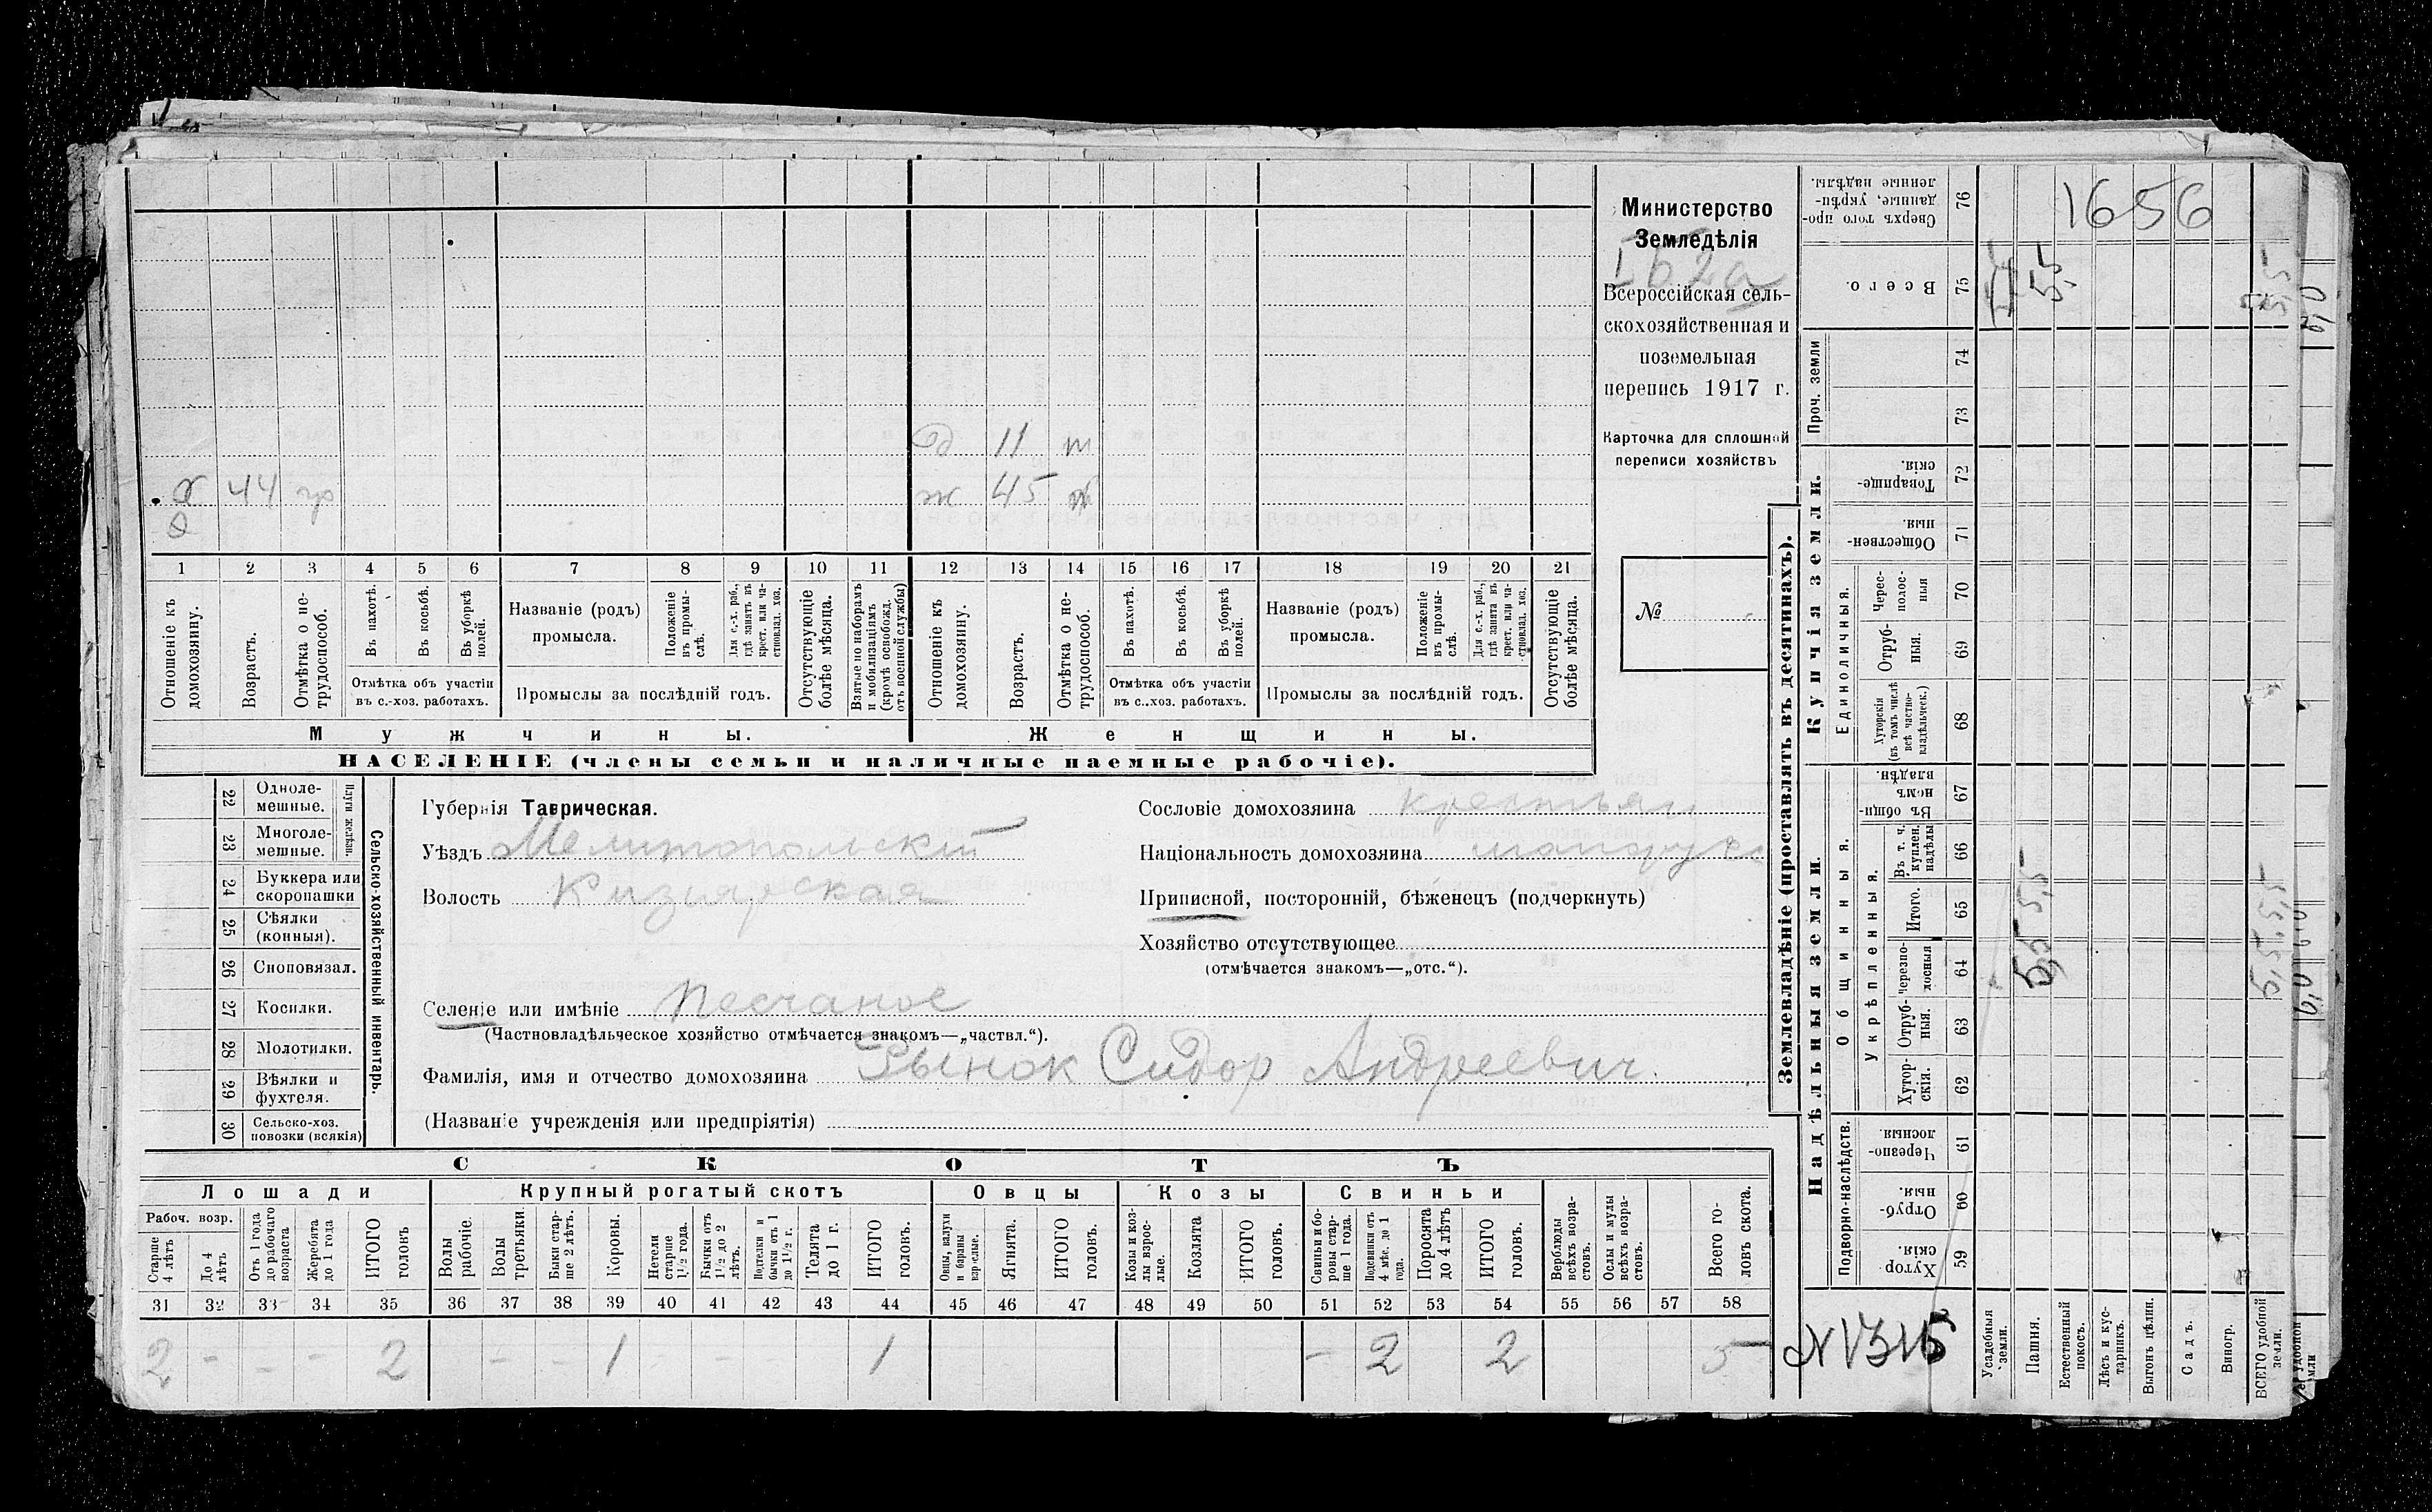 1656
Министерство
Земледѣлія
Всероссійская сель-
скохозяйственная и
поземельная
перепись 1917 г.
Карточка для сплошной
переписи хозяйствъ
№
д 11
х 44
ж 45
1 2 3 4 5 6 7 8 9 10 11 12 13 14 15 16 17 18 19 20 21
Отношеніе къ домохозяину.
Возрастъ.
Отмѣтка о не-трудоспособ.
Въ пахотѣ.
Въ косьбѣ.
Въ уборкѣ полей.
Отмѣтка объ участіи
въ с.-хоз. работахъ.
Названіе (родъ)
промысла.
Положеніе въ промы-слѣ.
Для с.-х. раб., гдѣ занятъ въ крест. или ча-стновлад. хоз.
Промыслы за послѣдній годъ.
Отсутствующіе болѣе мѣсяца.
Взятые по наборамъ и мобилизаціямъ (кромѣ освобожд. отъ военной службы)
Отношеніе къ домохозяину.
Возрастъ.
Отмѣтка о не-трудоспособ.
Въ пахотѣ.
Въ косьбѣ.
Въ уборкѣ полей.
Отмѣтка объ участіи
въ с.-хоз. работахъ.
Названіе (родъ)
промысла.
Положеніе въ промы-слѣ.
Для с.-х. раб., гдѣ занята въ крест. или ча-стновлад. хоз.
Промыслы за послѣдній годъ.
Отсутствующіе болѣе мѣсяца.
Мужчины.
Женщины.
НАСЕЛЕНІЕ (члены семьи и наличные наемные рабочіе).
Сельско-хозяйственный инвентарь.
Плуги желѣзн.
22 Одноле-мешные.
23 Многоле-мешные.
24 Буккера или скоропашки
25 Сѣялки (конныя).
26 Сноповязал.
27 Косилки.
28 Молотилки.
29 Вѣялки и фухтеля.
30 Сельско-хоз. повозки (всякія)
Губернія Таврическая.
Уѣздъ Мелитопольскій
Волость Кизіярская
Селеніе или имѣніе Песчаное
(Частновладѣльческое хозяйство отмѣчается знакомъ—„частвл.“).
Фамилія, имя и отчество домохозяина Рынок Сидор Андреевич.
(Названіе учрежденія или предпріятія)
Сословіе домохозяина крестьян,
Національность домохозяина малорус
Приписной, посторонній, бѣженецъ (подчеркнуть)
Хозяйство отсутствующее
(отмѣчается знакомъ—„отс.“).
СКОТЪ
Лошади
Крупный рогатый скотъ
Овцы
Козы
Свиньи
Рабоч. возр.
Старше 4 лѣтъ
До 4 лѣтъ
Отъ 1 года до рабочаго возраста
Жеребята до 1 года
ИТОГО головъ
Волы рабочіе.
Волы третьяки.
Быки стар-ше 2 лѣтъ.
Коровы.
Нетели старше 1½ года.
Бычки отъ 1½ до 2 лѣтъ.
Подтелки и бычки отъ 1 до 1½ г.
Телята до 1 г.
ИТОГО головъ.
Овцы, валухи и бараны взрослые.
Ягнята.
ИТОГО головъ.
Козы и коз-лы взрос-лые.
Козлята
ИТОГО головъ.
Свиньи и бо-ровы стар-ше 1 года.
Подсвинки отъ 4 мѣс. до 1 года.
Поросята до 4 лѣтъ
ИТОГО головъ.
Верблюды всѣхъ возра-стовъ.
Ослы и мулы всѣхъ возра-стовъ.
Всего го-ловъ скота.
31 32 33 34 35 36 37 38 39 40 41 42 43 44 45 46 47 48 49 50 51 52 53 54 55 56 57 58
2 - - - 2 - - 1 - - 1 - 2 2 5
Землевладѣніе (проставлять въ десятинахъ).
Надѣльныя земли.
Купчія земли.
Проч. земли
Подворно-наслѣдств.
Общинныя.
Укрѣпленныя.
Единоличныя.
Хутор-скія 59
Отруб-ныя. 60
Черезпо-лосныя 61
Хутор-скія. 62
Отруб-ныя. 63
Черезпо-лосныя 64
Итого. 65
Въ т. ч. куплен. надѣлы 66
Въ общи-номъ владѣн. 67
Хуторскія (въ томъ числѣ всѣ частно-владѣльческ.) 68
Отруб-ныя. 69
Черес-полос-ныя 70
Обществен-ныя. 71
Товарище-скія. 72
73
74
Всего. 75
Сверхъ того про-данные, укрѣп-ленные надѣлы. 76
Усадебныя земли.
Пашня. 5,5 5,5 5,5
Естественный покосъ.
Лѣсъ и кус-тарникъ.
Выгонъ цѣлин.
Садъ.
Виногр.
ВСЕГО удобной земли. 5,5 5,5 5,5